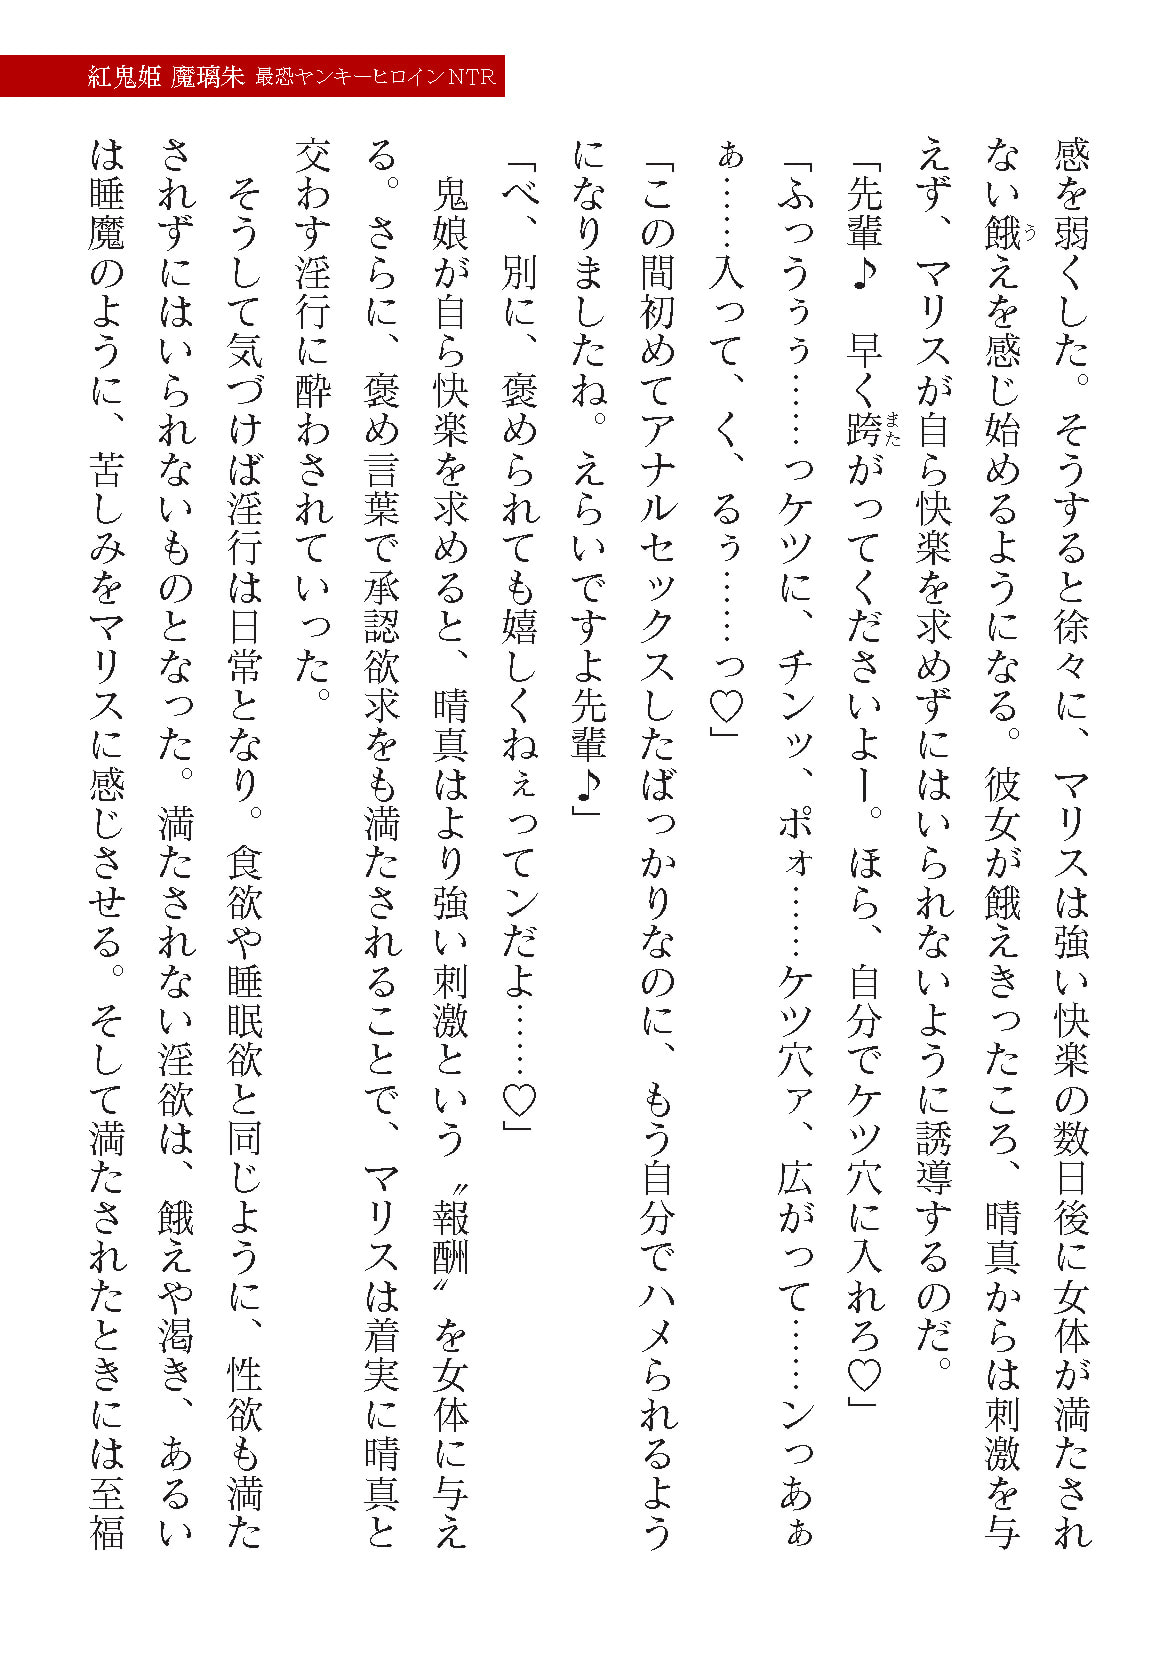 紅鬼姫 魔璃朱 最恐ヤンキーヒロインNTR
感を弱くした。そうすると徐々に、マリスは強い快楽の数日後に女体が満たされ
ない餓えを感じ始めるようになる。彼女が餓えきったころ、晴真からは刺激を与
えず、マリスが自ら快楽を求めずにはいられないように誘導するのだ。
「先輩♪　早く跨がってくださいよー。ほら、自分でケツ穴に入れろ♡」
「ふっうぅぅ……っケツに、チンッ、ポォ……ケツ穴ァ、広がって……ンっあぁ
ぁ……入って、く、るぅ……っ♡」
「この間初めてアナルセックスしたばっかりなのに、もう自分でハメられるよう
になりましたね。えらいですよ先輩♪」
「べ、別に、褒められても嬉しくねぇってンだよ……♡」
　鬼娘が自ら快楽を求めると、晴真はより強い刺激という〝報酬〟を女体に与え
る。さらに、褒め言葉で承認欲求をも満たされることで、マリスは着実に晴真と
交わす淫行に酔わされていった。
　そうして気づけば淫行は日常となり。食欲や睡眠欲と同じように、性欲も満た
されずにはいられないものとなった。満たされない淫欲は、餓えや渇き、あるい
は睡魔のように、苦しみをマリスに感じさせる。そして満たされたときには至福